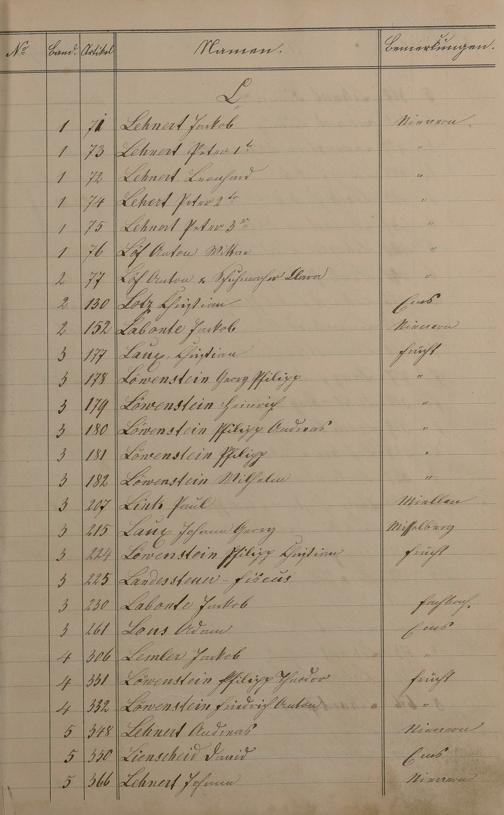 No Band. Artikel Namen. Bemerkungen.
L.
1 71 Lehnert Jakob Nievern.
1 73 Lehnert Peter 1r "
1 72 Lehnert Leonhard "
1 74 Lehert Peter 2te "
1 75 Lehnert Peter 3te "
1 76 Löf Anton Wittwe "
2 77 Löf Anton & Schuhmacher Clara "
2 130 Lotz Christian Ems
2 152 Labonte Jakob Nievern
3 177 Laux, Christian Frücht
3 178 Löwenstein Georg Philipp "
3 179 Löwenstein Heinrich "
3 180 Löwenstein Philipp Andreas "
3 181 Löwenstein Philipp "
3 182 Löwenstein Wilhelm "
3 207 Link Paul Miellen
3 215 Laux Johann Georg Misselberg
3 224 Löwenstein Philipp Christian Frücht
3 225 Landessteuer-Fiscus
3 230 Labonte Jakob Fachbach.
3 261 Lons Adam Ems
4 306 Lemler Jakob "
4 331 Löwenstein Philipp Theodor Frücht
4 332 Löwenstein Friedrich Anton "
5 348 Lehnert Andreas Nievern
5 350 Lienscheid David Ems
5 366 Lehnert Johann Nievern